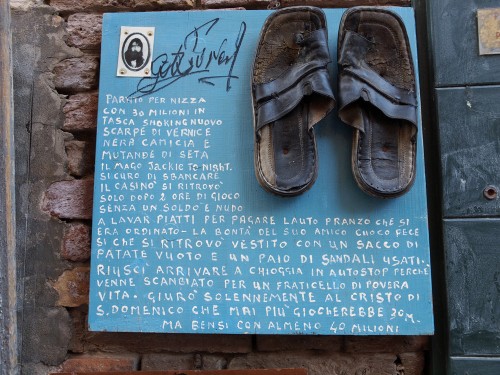 PARTITO PER NIZZA
CON 30 MILIONI IN
TASCA SMOKING NUOVO
SCARPE DI VERNICE
NERA CAMICIA E
MUTANDE DI SETA
IL MAGO JACKIE TO-NIGHT.
SICURO DI SBANCARE
IL CASINO' SI RITROVO'
SOLO DOPO 2 ORE DI GIOCO
SENZA UN SOLDO E NUDO
A LAVAR PIATTI PER PAGARE LAUTO PRANZO CHE SI
ERA ORDINATO - LA BONTÀ DEL SUO AMICO CUOCO FECE
SI CHE SI RITROVO' VESTITO CON UN SACCO DI
PATATE VUOTO E UN PAIO DI SANDALI USATI.
RIUSCÌ ARRIVARE A CHIOGGIA IN AUTOSTOP PERCHÈ
VENNE SCAMBIATO PER UN FRATICELLO DI POVERA
VITA. GIURO' SOLENNEMENTE AL CRISTO DI
S. DOMENICO CHE MAI PIÙ GIOCHEREBBE 30 M.
MA BENSI CON ALMENO 40 MILIONI